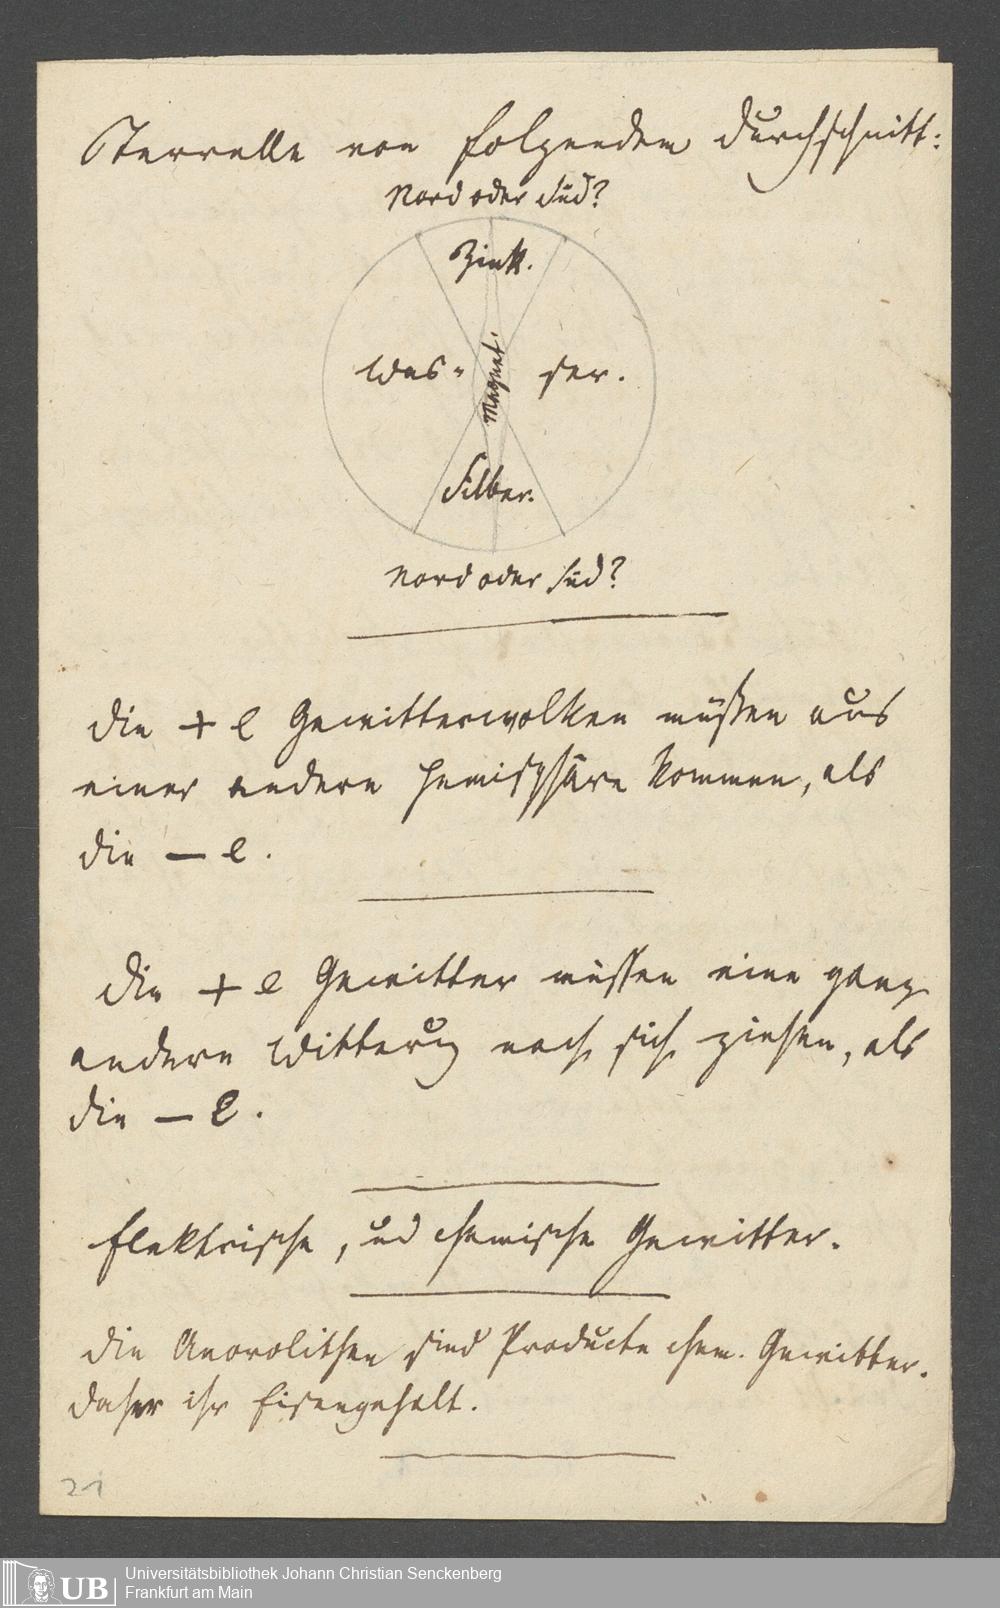 Terrelle von folgendem Durchschnitt:
Nord oder Süd?
Zink.
Was-
Magnet.
ser.
Silber.
Nord oder Süd?
Die + e Gewitterwolken müssen aus
einer andern Hemisphäre kommen, als
die — e.
Die + e Gewitter müssen eine ganz
andere Witterung nach sich ziehen, als
die — e.
Elektrische, und chemische Gewitter.
Die Aërolithen sind Producte chem. Gewitter.
daher ihr Eisengehalt.
21
UB
Universitätsbibliothek Johann Christian Senckenberg
Frankfurt am Main